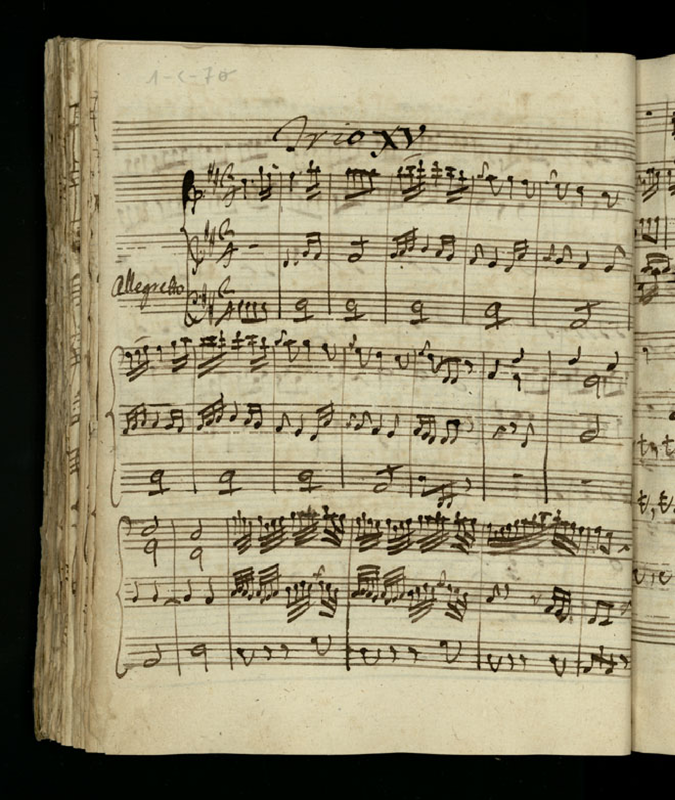 Trio XV
Allegretto